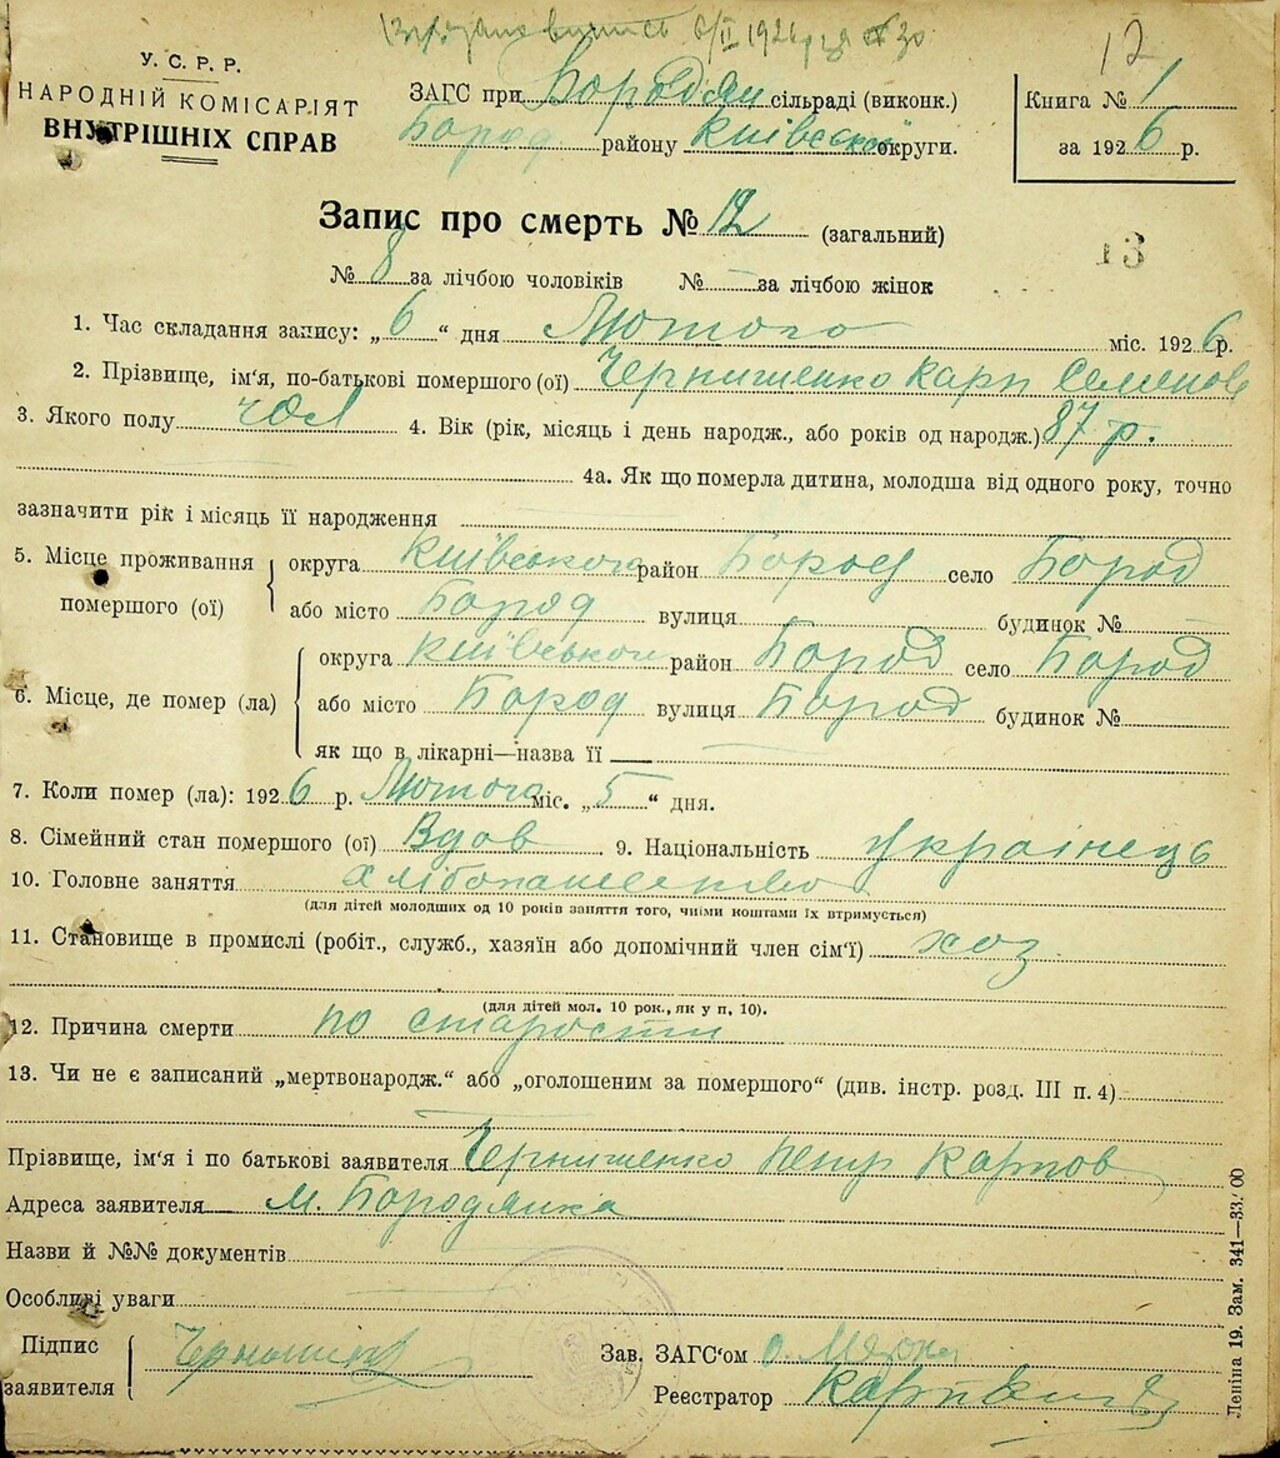 6/II 1926 р
12
У. С. Р. Р.
НАРОДНІЙ КОМІСАРІЯТ
ВНУТРІШНІХ СПРАВ
ЗАГС при Бородян сільраді (виконк.)
Бород району Київської округи.
Книга № 1
за 1926 р.
Запис про смерть № 12 (загальний)
13
№ 8 за лічбою чоловіків № — за лічбою жінок
1. Час складання запису: „6“ дня Лютого міс. 1926 р.
2. Прізвище, ім'я, по-батькові помершого (ої) Чернишенко Карп Семенов
3. Якого полу чол 4. Вік (рік, місяць і день народж., або років од народж.) 87 р.
4а. Як що померла дитина, молодша від одного року, точно
зазначити рік і місяць її народження
5. Місце проживання помершого (ої)
округа Київського район Бород село Бород
або місто Бород вулиця будинок №
6. Місце, де помер (ла)
округа Київського район Бород село Бород
або місто Бород вулиця Бород будинок №
як що в лікарні—назва її
7. Коли помер (ла): 1926 р. Лютого міс. „5“ дня.
8. Сімейний стан помершого (ої) Вдов 9. Національність українець
10. Головне заняття хлібопашество
(для дітей молодших од 10 років заняття того, чиїми коштами їх втримується)
11. Становище в промислі (робіт., служб., хазяїн або допомічний член сім'ї) хоз
(для дітей мол. 10 рок., як у п. 10).
12. Причина смерти по старости
13. Чи не є записаний „мертвонародж.“ або „оголошеним за помершого“ (див. інстр. розд. III п. 4)
Прізвище, ім'я і по батькові заявителя Чернишенко Петр Карпов
Адреса заявителя м. Бородянка
Назви й №№ документів
Особливі уваги
Підпис заявителя
Зав. ЗАГС'ом
Реєстратор
Леніна 19. Зам. 341—33.